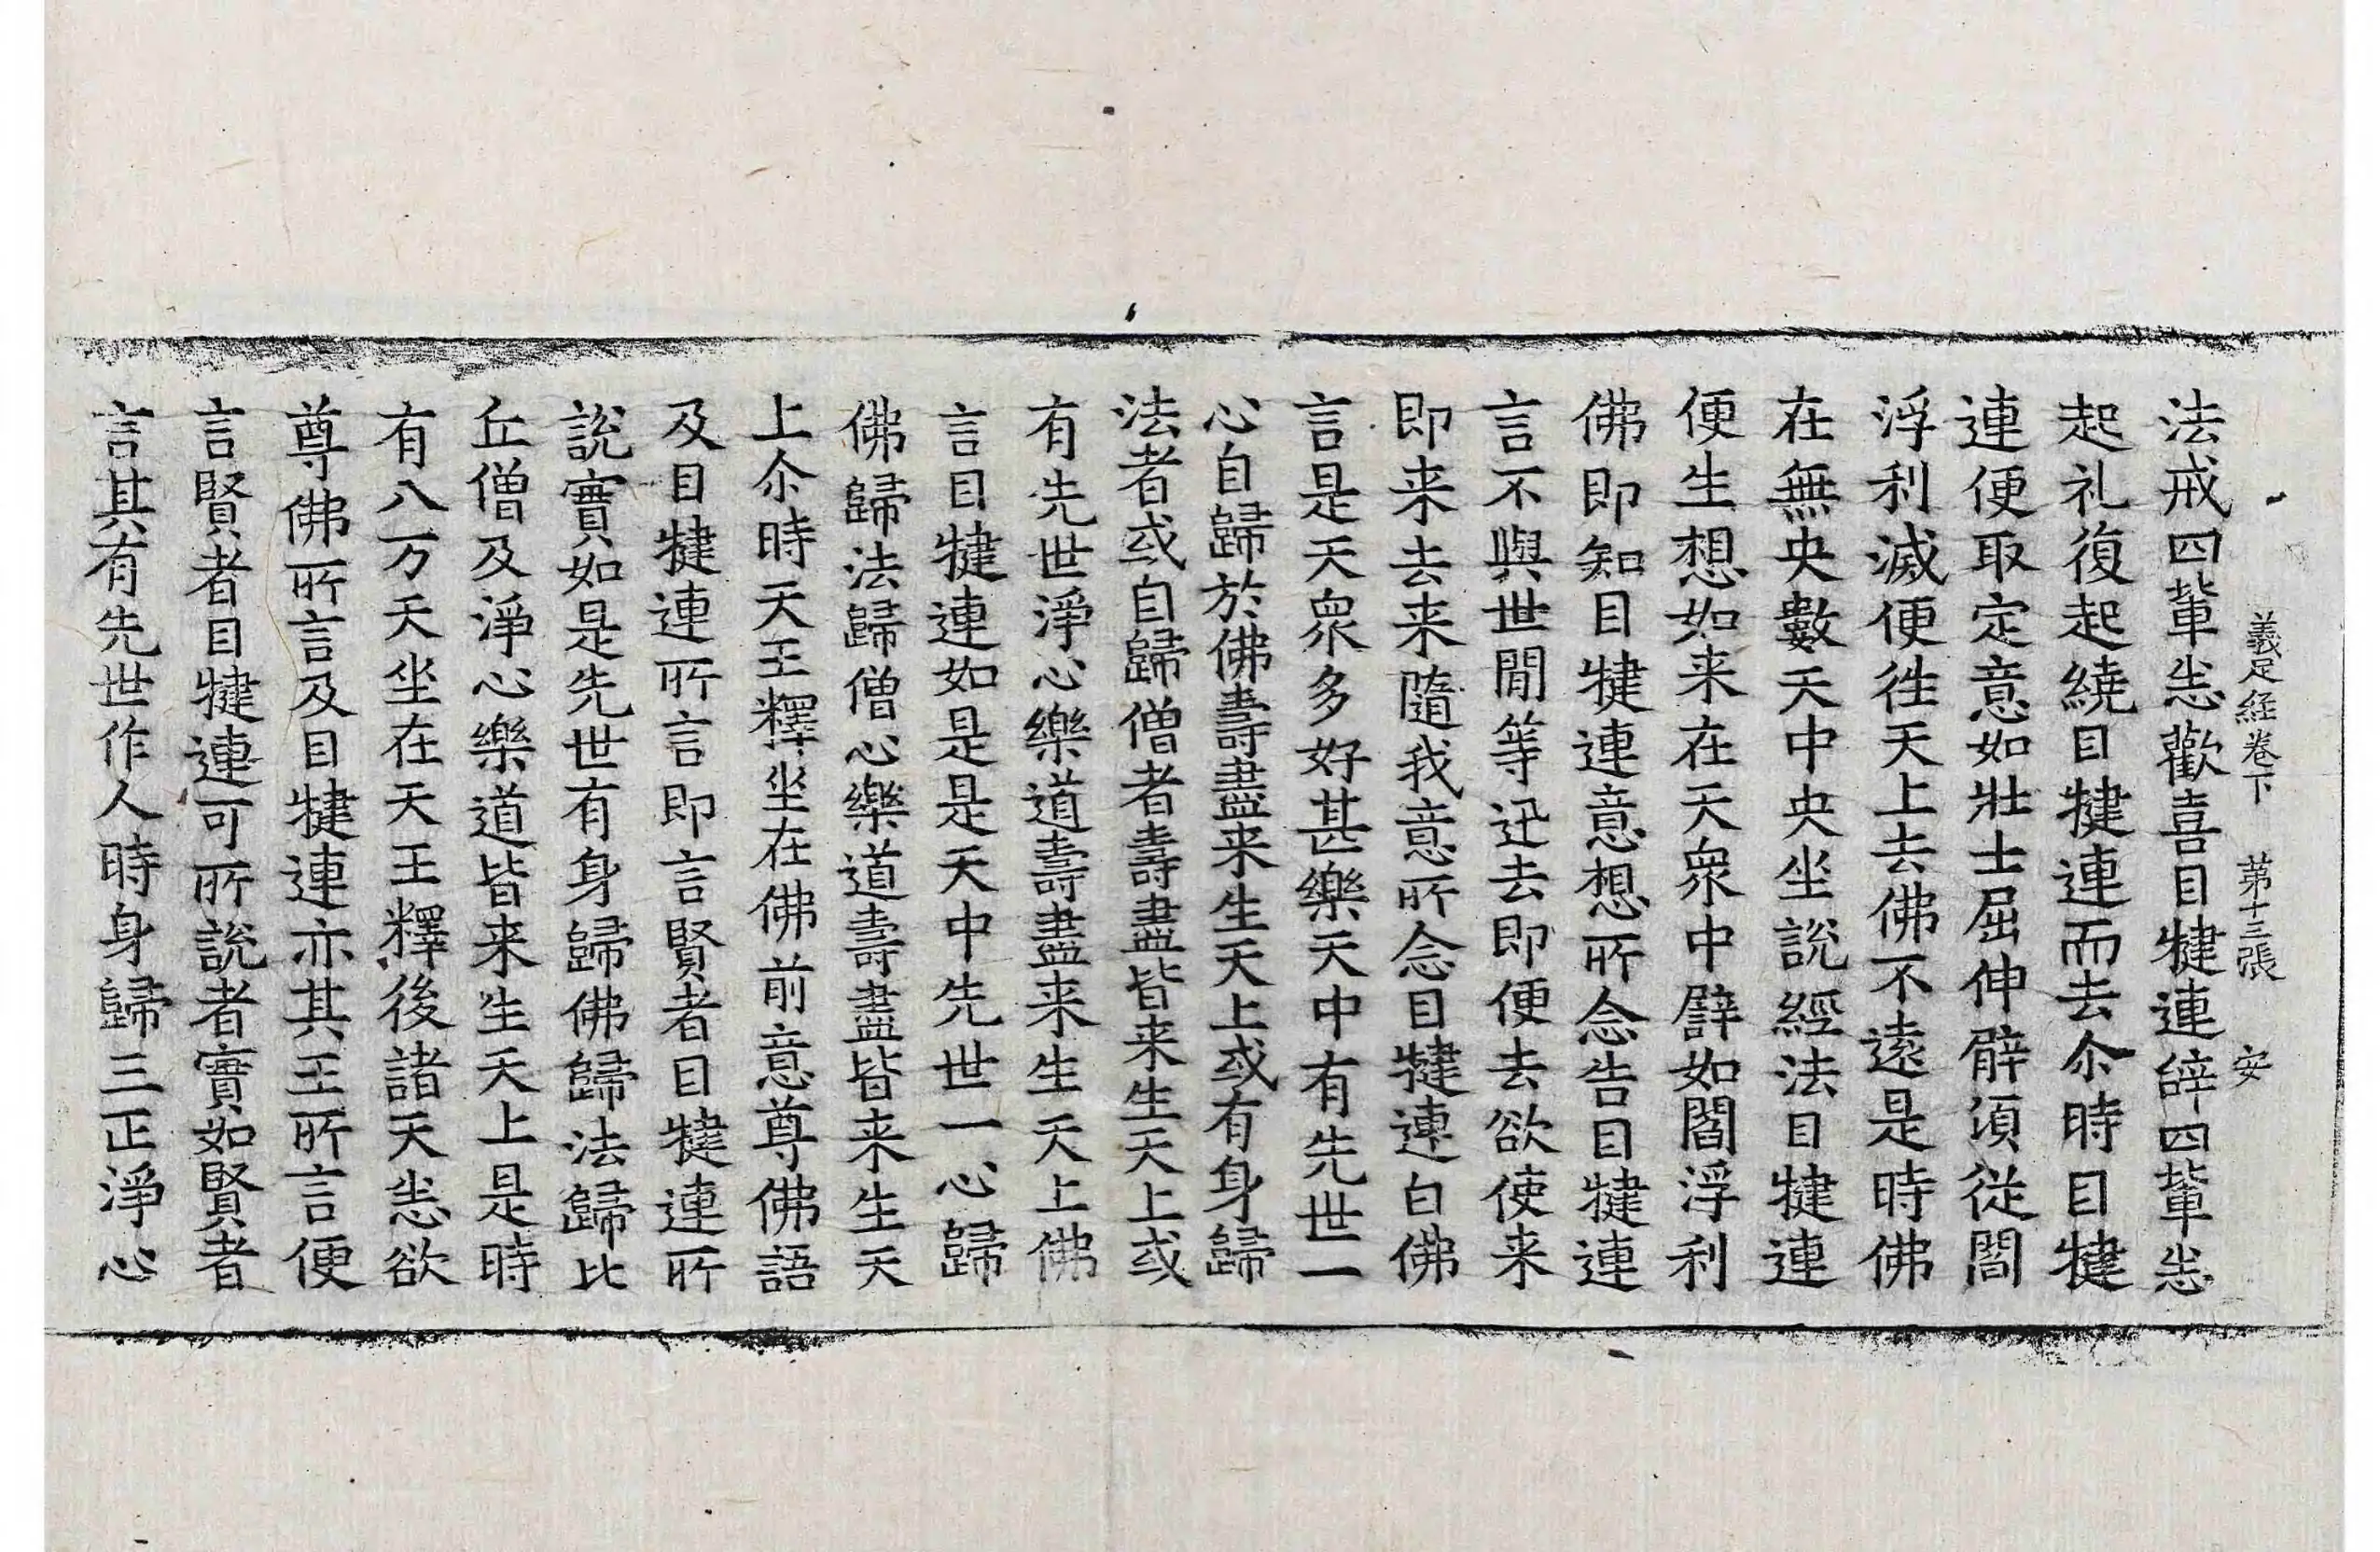 義足経卷下 第十三張 安
法戒四軰㤀歡喜目犍連辝四軰㤀
起礼復起繞目犍連而去尒時目犍
連便取定意如壯士屈伸臂須從閻
浮利滅便徃天上去佛不遠是時佛
在無央數天中央坐說經法目犍連
便生想如来在天衆中譬如閻浮利
佛即知目犍連意想所念告目犍連
言不與世閒等迅去即便去欲使来
即来去来隨我意所念目犍連白佛
言是天衆多好甚樂天中有先世一
心自歸於佛壽盡来生天上或有身歸
法者或自歸僧者壽盡皆来生天上或
有先世淨心樂道壽盡来生天上佛
言目犍連如是是天中先世一心歸
佛歸法歸僧心樂道壽盡皆来生天
上尒時天王釋坐在佛前意尊佛語
及目犍連所言即言賢者目犍連所
說實如是先世有身歸佛歸法歸比
丘僧及淨心樂道皆来生天上是時
有八万天坐在天王釋後諸天㤀欲
尊佛所言及目犍連亦其王所言便
言賢者目犍連可所說者實如賢者
言其有先世作人時身歸三正淨心